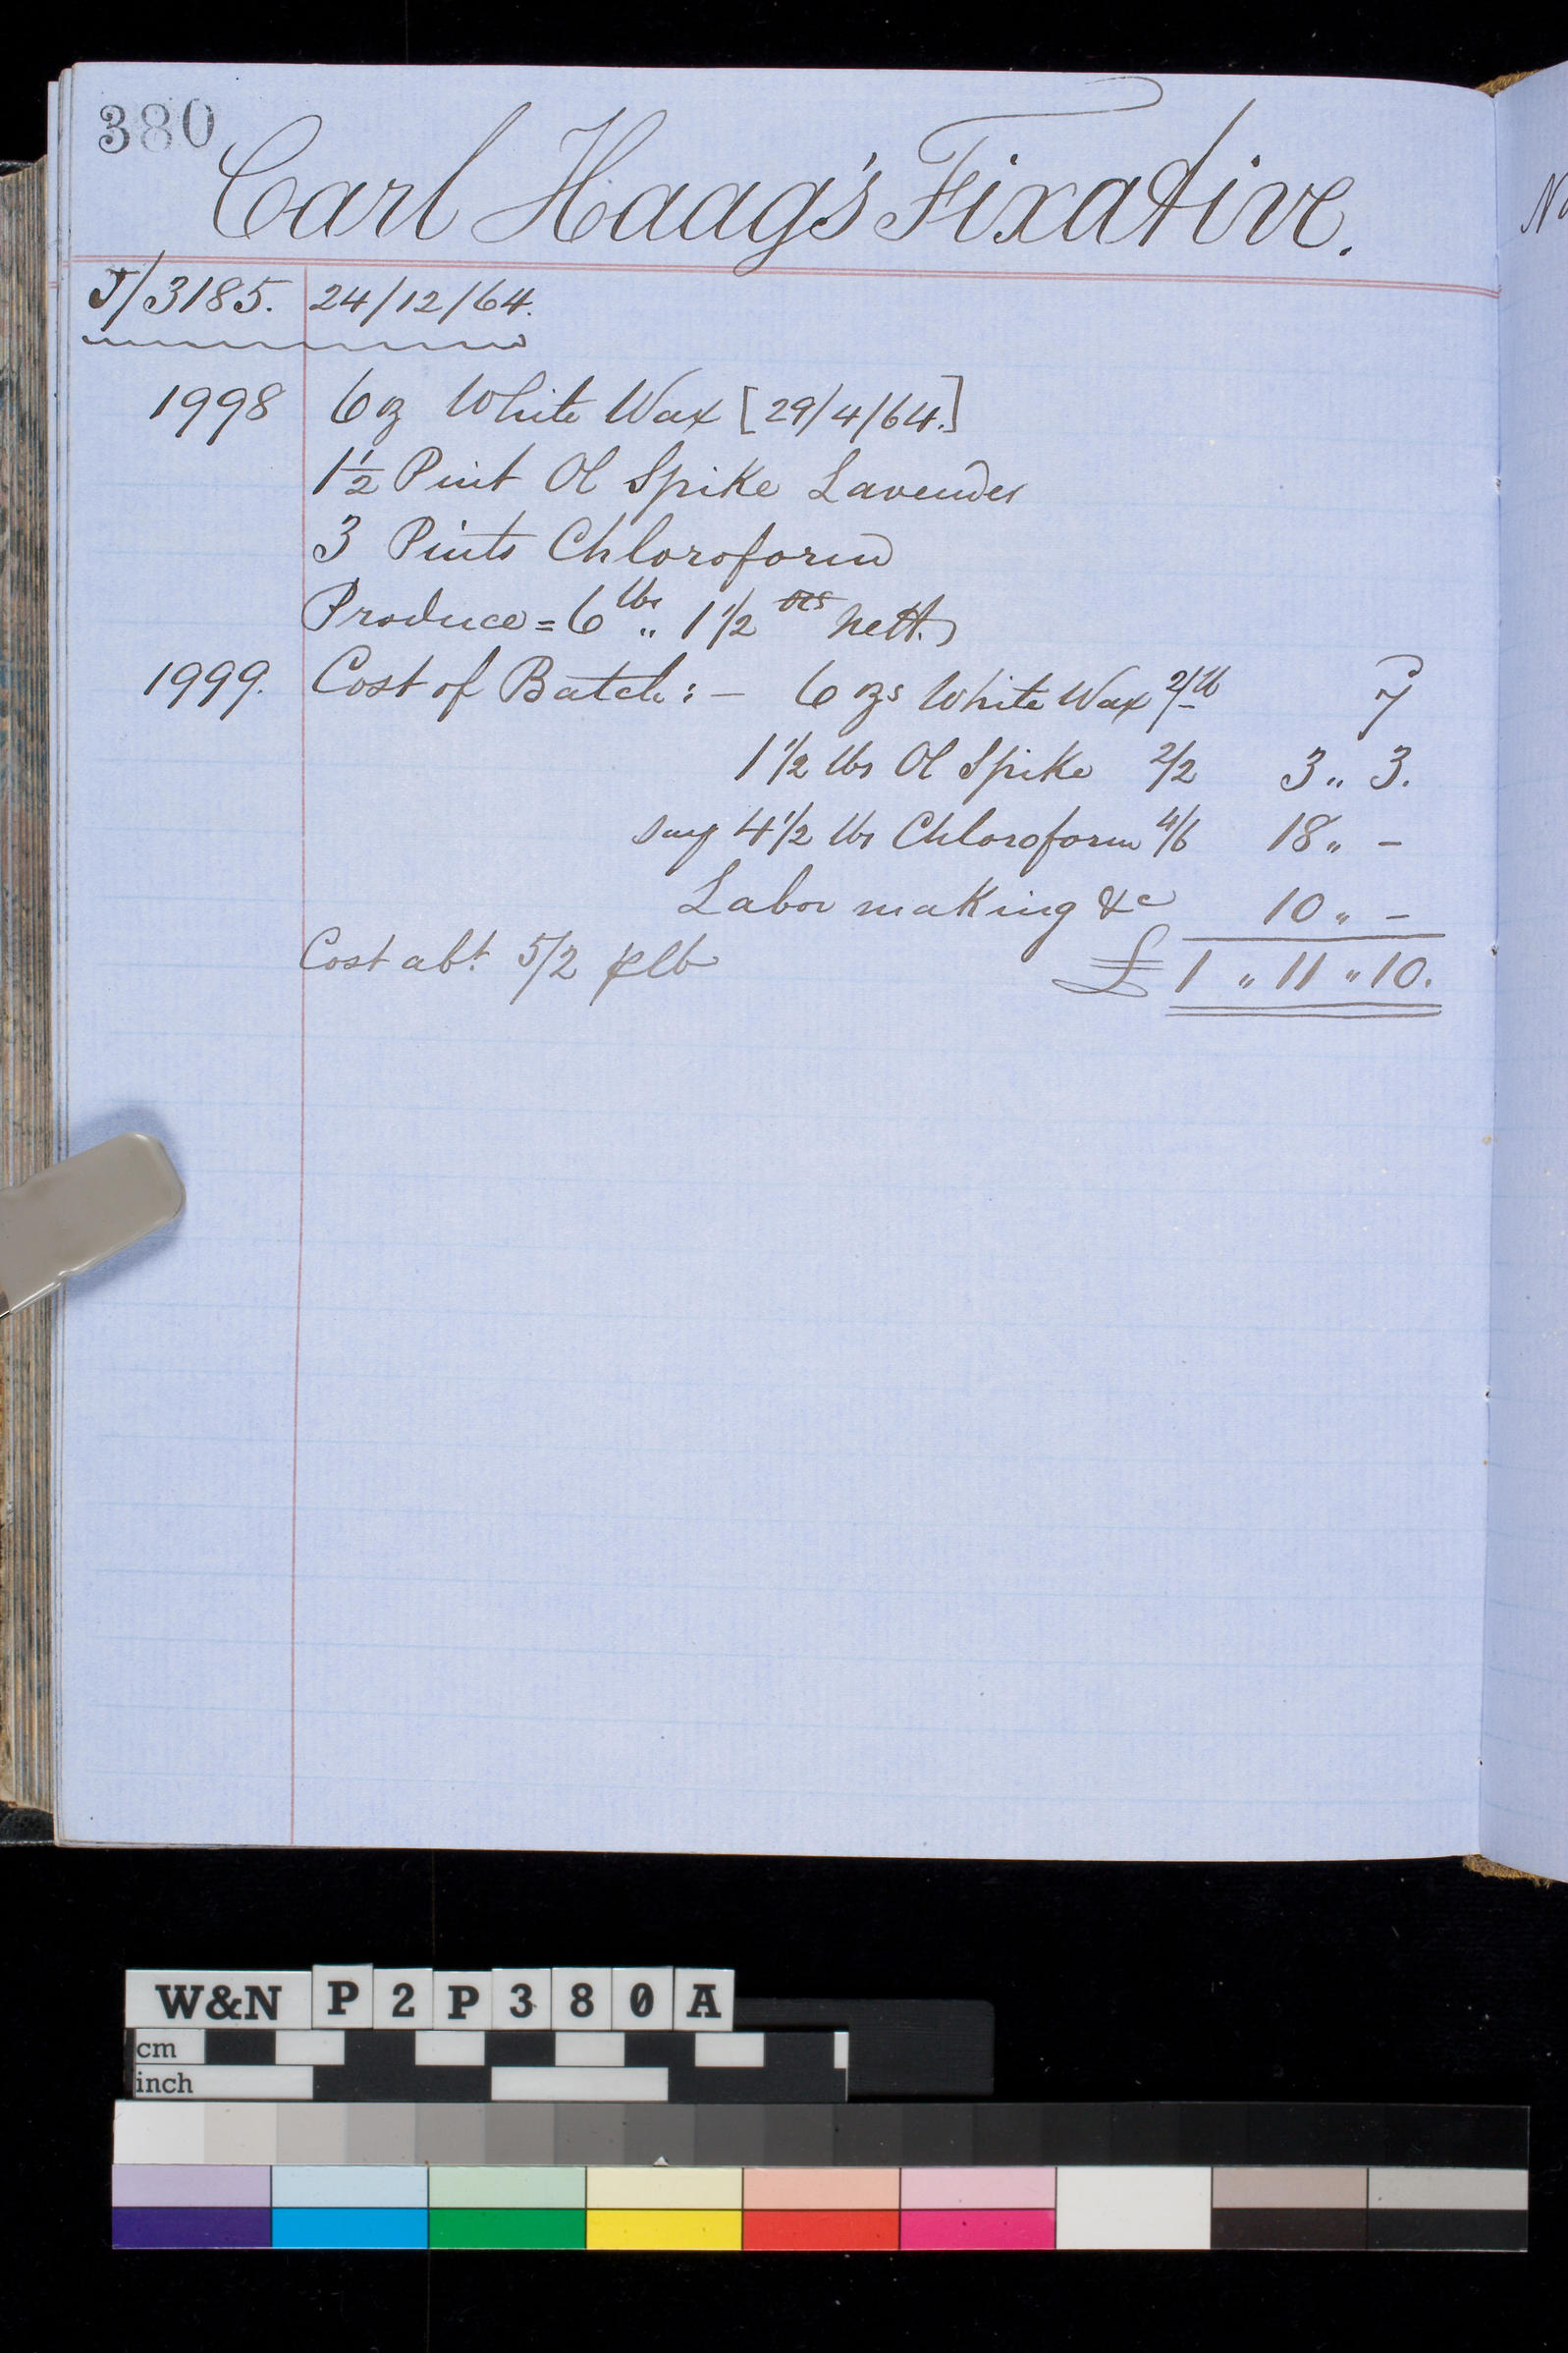 380
Carl Haag's Fixative.
J/3185. 24/12/64.
1998 6 oz White Wax [29/4/64.]
1½ Pint Ol Spike Lavender
3 Pints Chloroform
Produce = 6 lbs „ 1½ ozs nett.
1999. Cost of Batch :- 6 ozs White Wax 2/- lb 7
1½ lbs Ol Spike 2/2 3 „ 3.
say 4½ lbs Chloroform 4/6 18 „ -
Labor making &c 10 „ -
Cost abt. 5/2 ⅌ lb £ 1 „ 11 „ 10.
W&N P2P380A
cm
inch